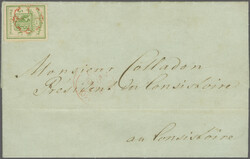 Monsieur Colladon
Président du Consistoire
au Consistoire